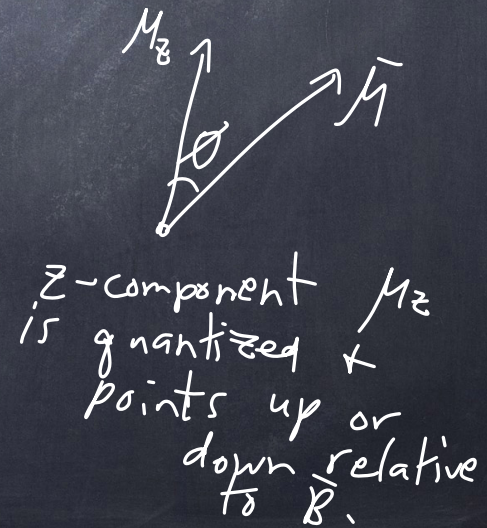 μz
μ̄
θ
z-component μz
is quantized &
points up or
down relative
to B̄.